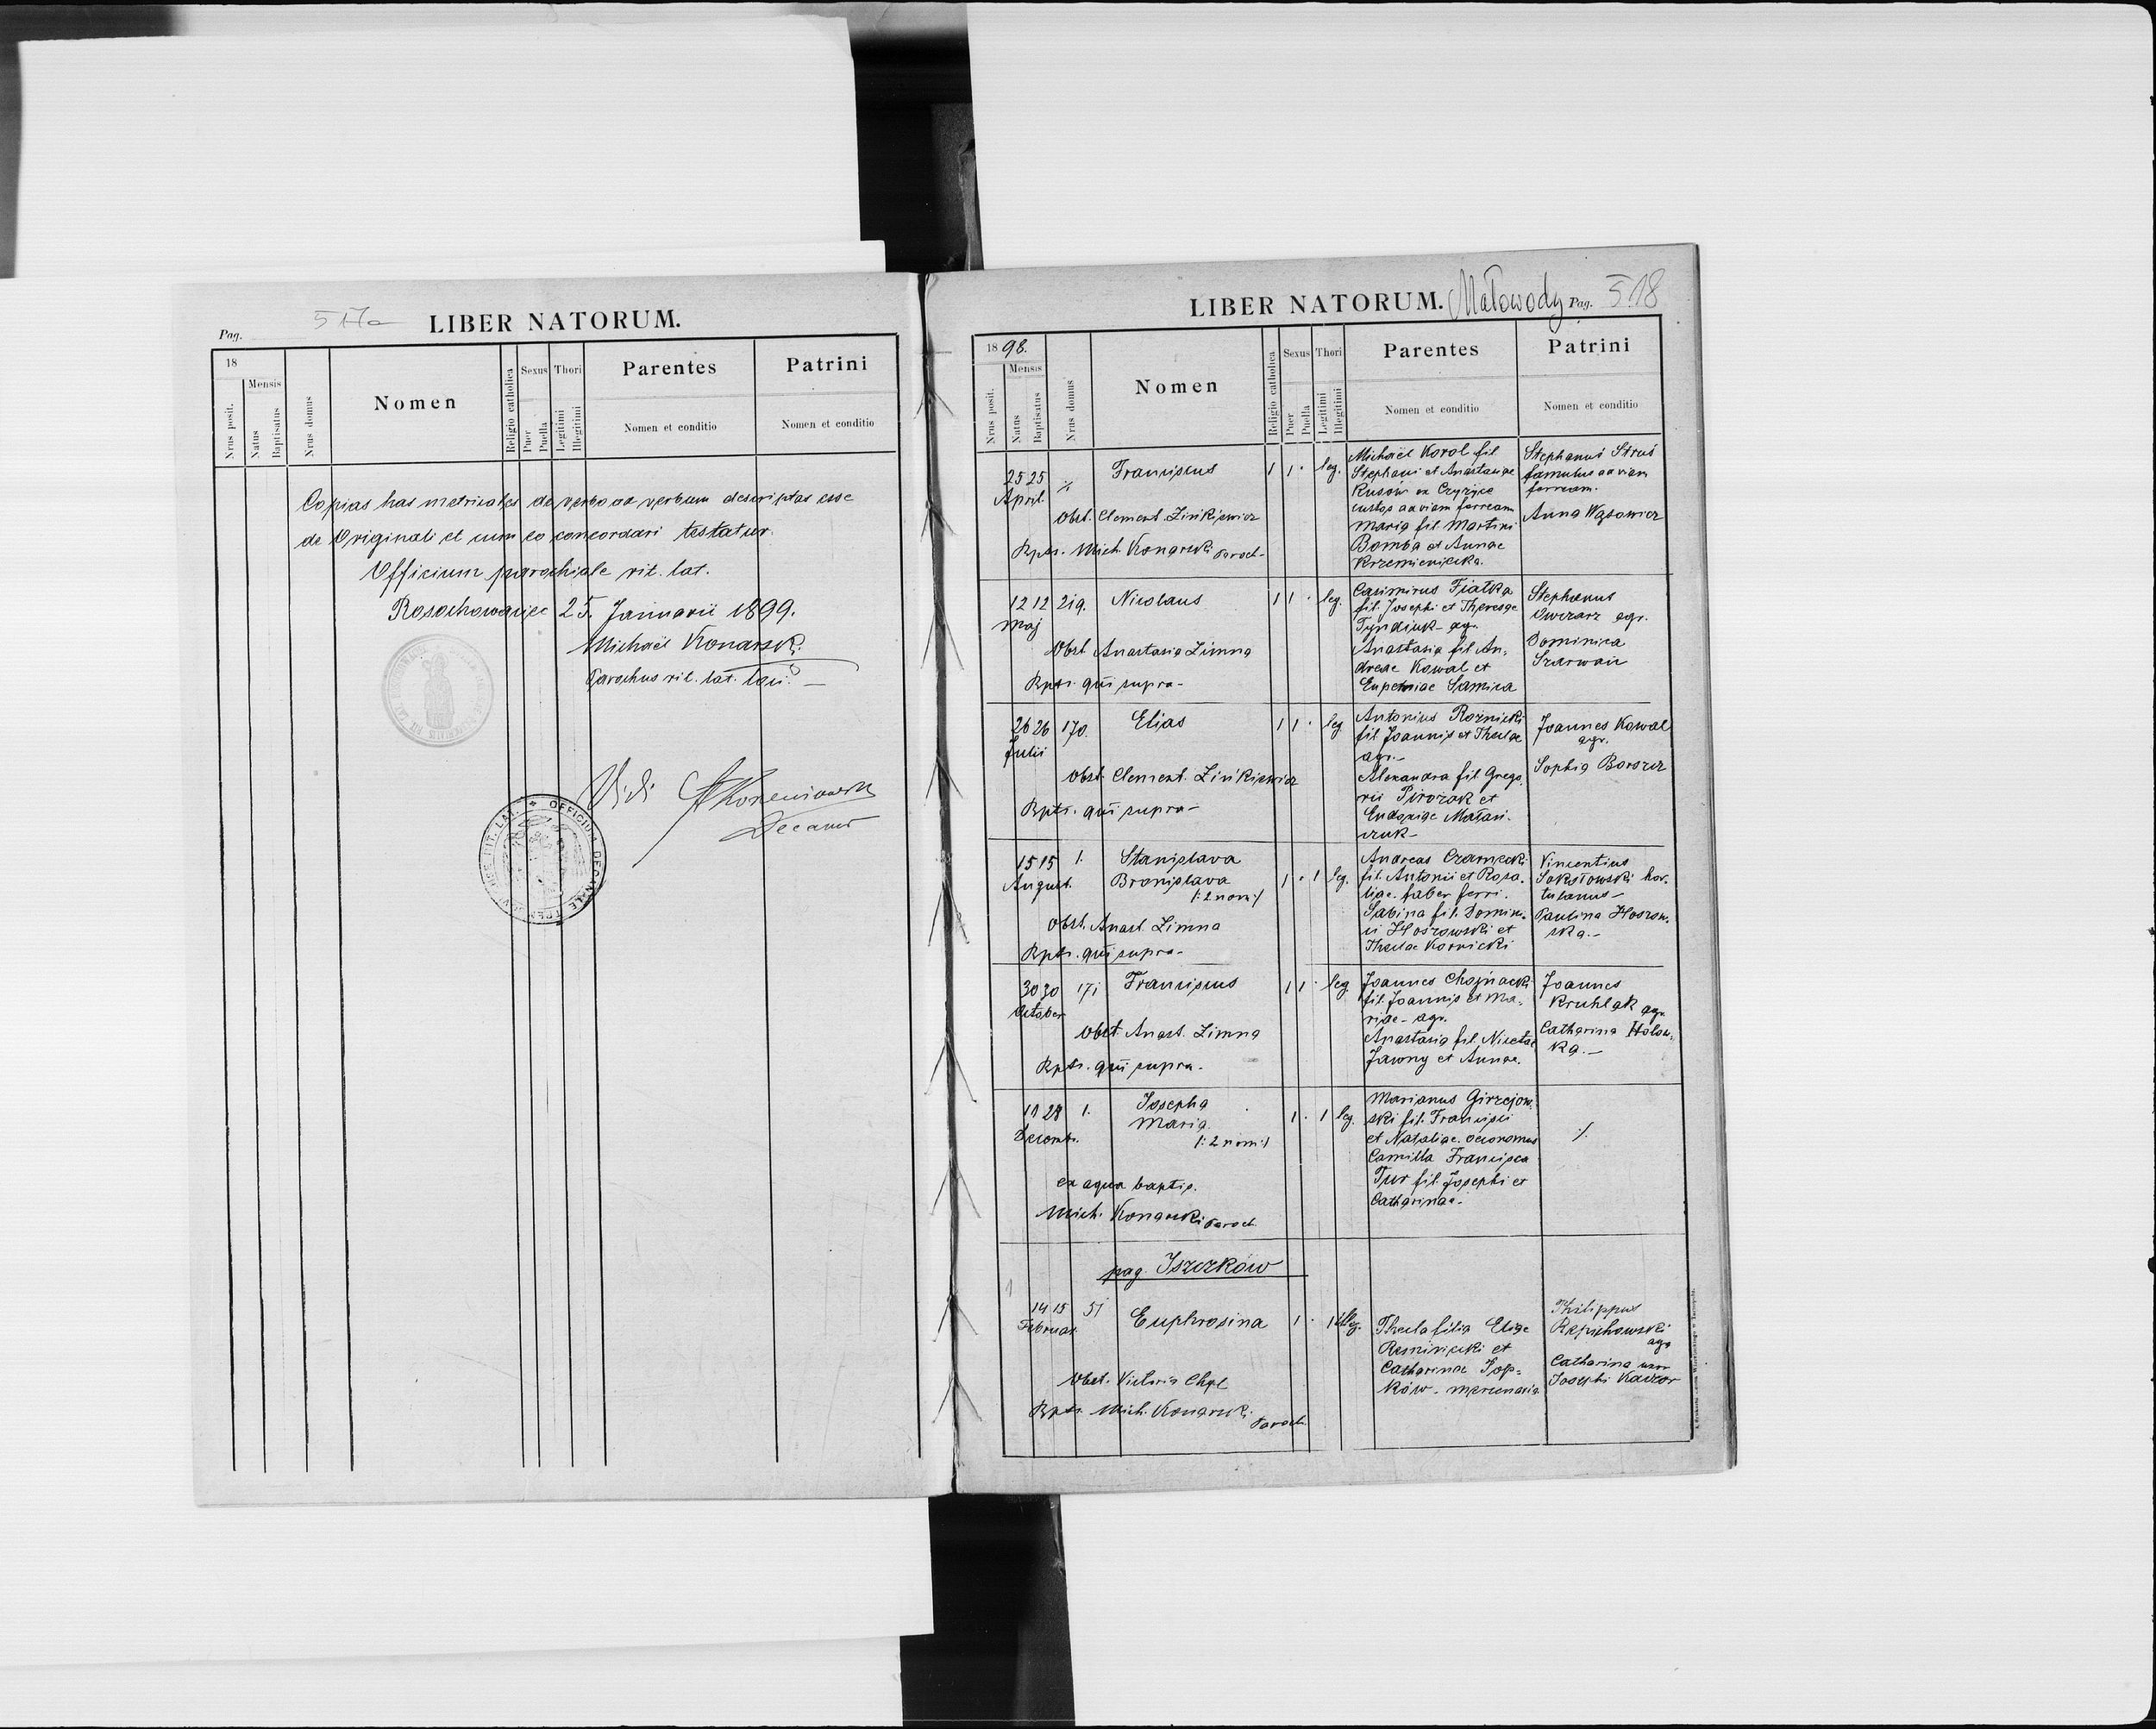 Pag. 517a LIBER NATORUM.
18
Mensis
Nrus posit.
Natus
Baptisatus
Nrus domus
Nomen
Religio catholica
Sexus
Puer
Puella
Thori
Legitimi
Illegitimi
Parentes
Nomen et conditio
Patrini
Nomen et conditio
Copias has metricales de verbo ad verbum descriptas esse
de Originali et cum eo concordari testatur.
Officium parochiale rit. lat.
Rosochowaciec 25. Januarii 1899.
Michaël Konarski
Parochus rit. lat. loci.
Vidi
Decanus
OFFICIUM DECANALE
LIBER NATORUM. Małowody Pag. 518
1898.
Mensis
Nrus posit.
Natus
Baptisatus
Nrus domus
Nomen
Religio catholica
Sexus
Puer
Puella
Thori
Legitimi
Illegitimi
Parentes
Nomen et conditio
Patrini
Nomen et conditio
25 25 ./. Franciscus 1 1 · leg.
April.
Obst. Clement. Zinkiewicz
Bpts. Mich. Konarski Paroch.
Michaël Korol fil
Stephani et Anastasiae
Kusów ex
custos ad viam ferream
Maria fil Martini
Bomba et Annae
Krzemienicka.
Stephanus Struś
famulus ad viam
ferream.
Anna Wąsowicz
12 12 219. Nicolaus 1 1 · leg.
Maj
Obst Anastasia Zimna
Bpts. qui supra-
Casimirus Fiałka
fil. Josephi et Theresae
Tyndiuk - agr.
Anastasia fil An-
dreae Kowal et
Eupemiae Samica
Stephanus
Owczarz agr.
Dominica
Szarwan
26 26 170. Elias 1 1 · leg
Julii
Obst. Clement. Zinkiewicz
Bpts. qui supra-
Antonius Rożnicki
fil Joannis et Theclae
agr.-
Alexandra fil Grego.
rii Pirożak et
Eudoxiae Małań.
czuk-
Joannes Kowal
agr.
Sophia Barszcz
15 15 1. Stanislava
August. Bronislava 1 · 1 leg.
/:2 nom:/
Obst. Anast. Zimna
Bpts. qui supra-
Andreas Czarnecki
fil. Antonii et Rosa.
liae. faber ferri.
Sabina fil. Domin.
ci Hoszowski et
Theclae Kornicki
Vincentius
Sokołowski hor.
tulanus-
Paulina Hoszow.
ska.-
30 30 171 Franciscus 1 1 · leg
October
Obst. Anast. Zimna
Bpts. qui supra.
Joannes Chojnacki
fil. Joannis et Ma.
riae - agr.
Anastasia fil. Nicetae
Jawny et Annae.
Joannes
Kruhlak agr.
Catharina Hołow.
ka.-
11 28 1. Josepha
Decemb. Maria 1 · 1 leg.
/:2 nom:/
ex aqua baptis.
Mich. Konarski Paroch.
Marianus Girzejow.
ski fil. Francisci
et Nataliae. oeconomus
Camilla Francisca
Tur fil. Josephi et
Catharinae.
./.
pag. Iszczków
14 15 51 Euphrosina 1 · 1 illeg.
Februar.
Obst. Victoria Chyl
Bpts. Mich. Konarski Paroch.
Thecla filia Eliae
Reminicki et
Catharinae Pop-
ków. mercenaria
Philippus
Repichowski
agr
Catharina uxor
Josephi Kaczor